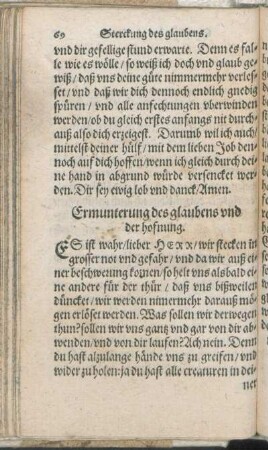 69 Sterckung des glaubens.
vnd dir gefellige stund erwarte. Denn es fal-
le wie es wölle/ so weiß ich doch vnd glaub ge-
wiß/ daß vns deine güte nimmermehr verles-
set/ vnd daß wir dich dennoch endlich gnedig
spüren/ vnd alle anfechtungen vberwinden
werden/ ob du gleich erstes anfangs nit durch-
auß also dich erzeigest. Darumb wil ich auch/
mittelst deiner hülf/ mit dem lieben Job den-
noch auf dich hoffen/ wenn ich gleich durch dei-
ne hand in abgrund würde versencket wer-
den. Dir sey ewig lob vnd danck/ Amen.
Ermunterung des glaubens vnd
der hofnung.
ES ist wahr/ lieber HERR/ wir stecken in
grosser not vnd gefahr/ vnd da wir auß ei-
ner beschwerung komen/ so helt vns alsbald ei-
ne andere für der thür/ daß vns bißweilen
düncket/ wir werden nimermehr darauß mö-
gen erlöset werden. Was sollen wir derwegen
thun? sollen wir vns gantz vnd gar von dir ab-
wenden/ vnd von dir laufen? Ach nein. Denn
du hast alzulange hände vns zu greifen/ vnd
wider zu holen: ja du hast alle creaturen in dei-
ner